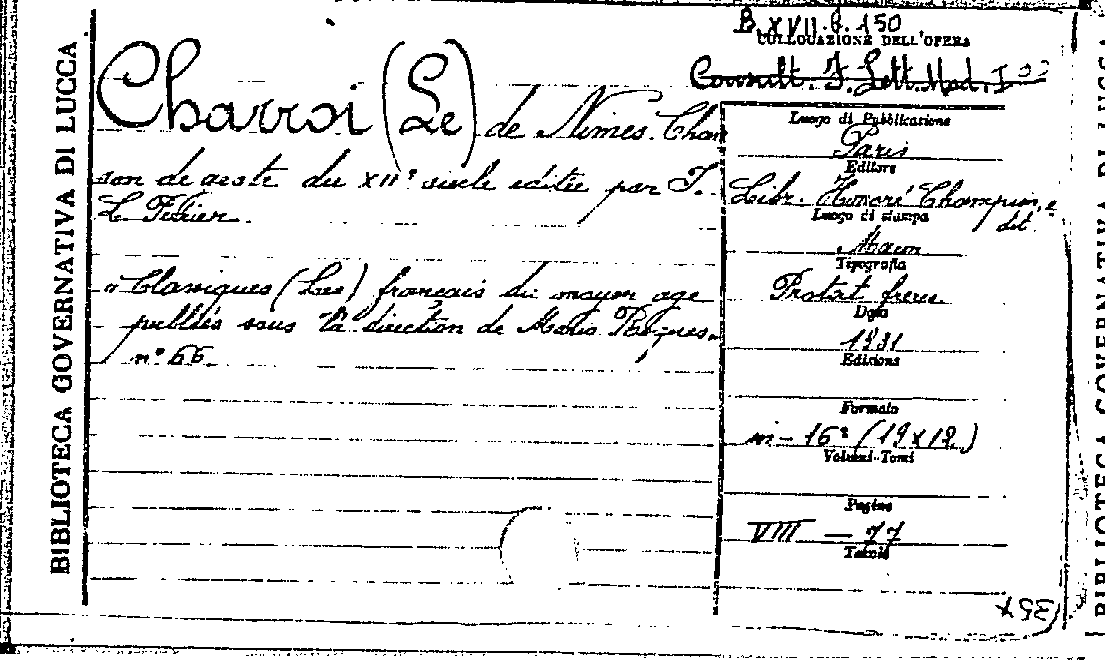 BIBLIOTECA GOVERNATIVA DI LUCCA
B. XVII. 6. 150
COLLOCAZIONE DELL'OPERA
Consult. F. Lett. Mod. I
Charroi (Le) de Nimes. Chan
son de geste du XIIe siecle editée par J.
L. Perrier.
"Classiques (Les) francais du moyen age
publiés sous la direction de Mario Roques.
n° 66
Luogo di Pubblicazione
Paris
Editore
Libr. Honoré Champion, é
dit.
Luogo di stampa
Macon
Tipografia
Protat freres
Data
1931
Edizione
Formato
in-16° (19x12)
Volumi-Tomi
Pagine
VIII - 77
Tavole
BIBLIOTECA GOVERNATIVA DI LUCCA